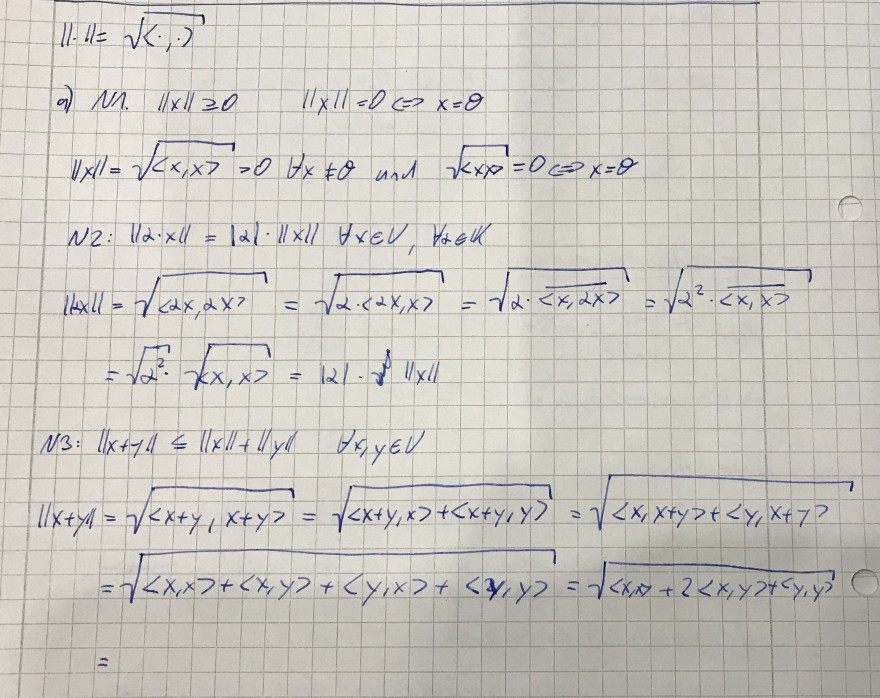 ||·|| = √<·,·>
a) N1. ||x|| ≥ 0 ||x|| = 0 <=> x = θ
||x|| = √<x,x> >0 ∀x ≠ θ und √<xx> = 0 <=> x = θ
N2: ||α·x|| = |α|·||x|| ∀x∈V, ∀α∈K
||αx|| = √<αx,αx> = √α·<αx,x> = √α·\overline{<x,αx>} = √α²·\overline{<x,x>}
= √α²· √<x,x> = |α|· ||x||
N3: ||x+y|| ≤ ||x||+||y|| ∀x,y∈V
||x+y|| = √<x+y, x+y> = √<x+y,x>+<x+y,y> = √<x,x+y>+<y,x+y>
= √<x,x>+<x,y>+<y,x>+<y,y> = √<x,x>+2<x,y>+<y,y>
=